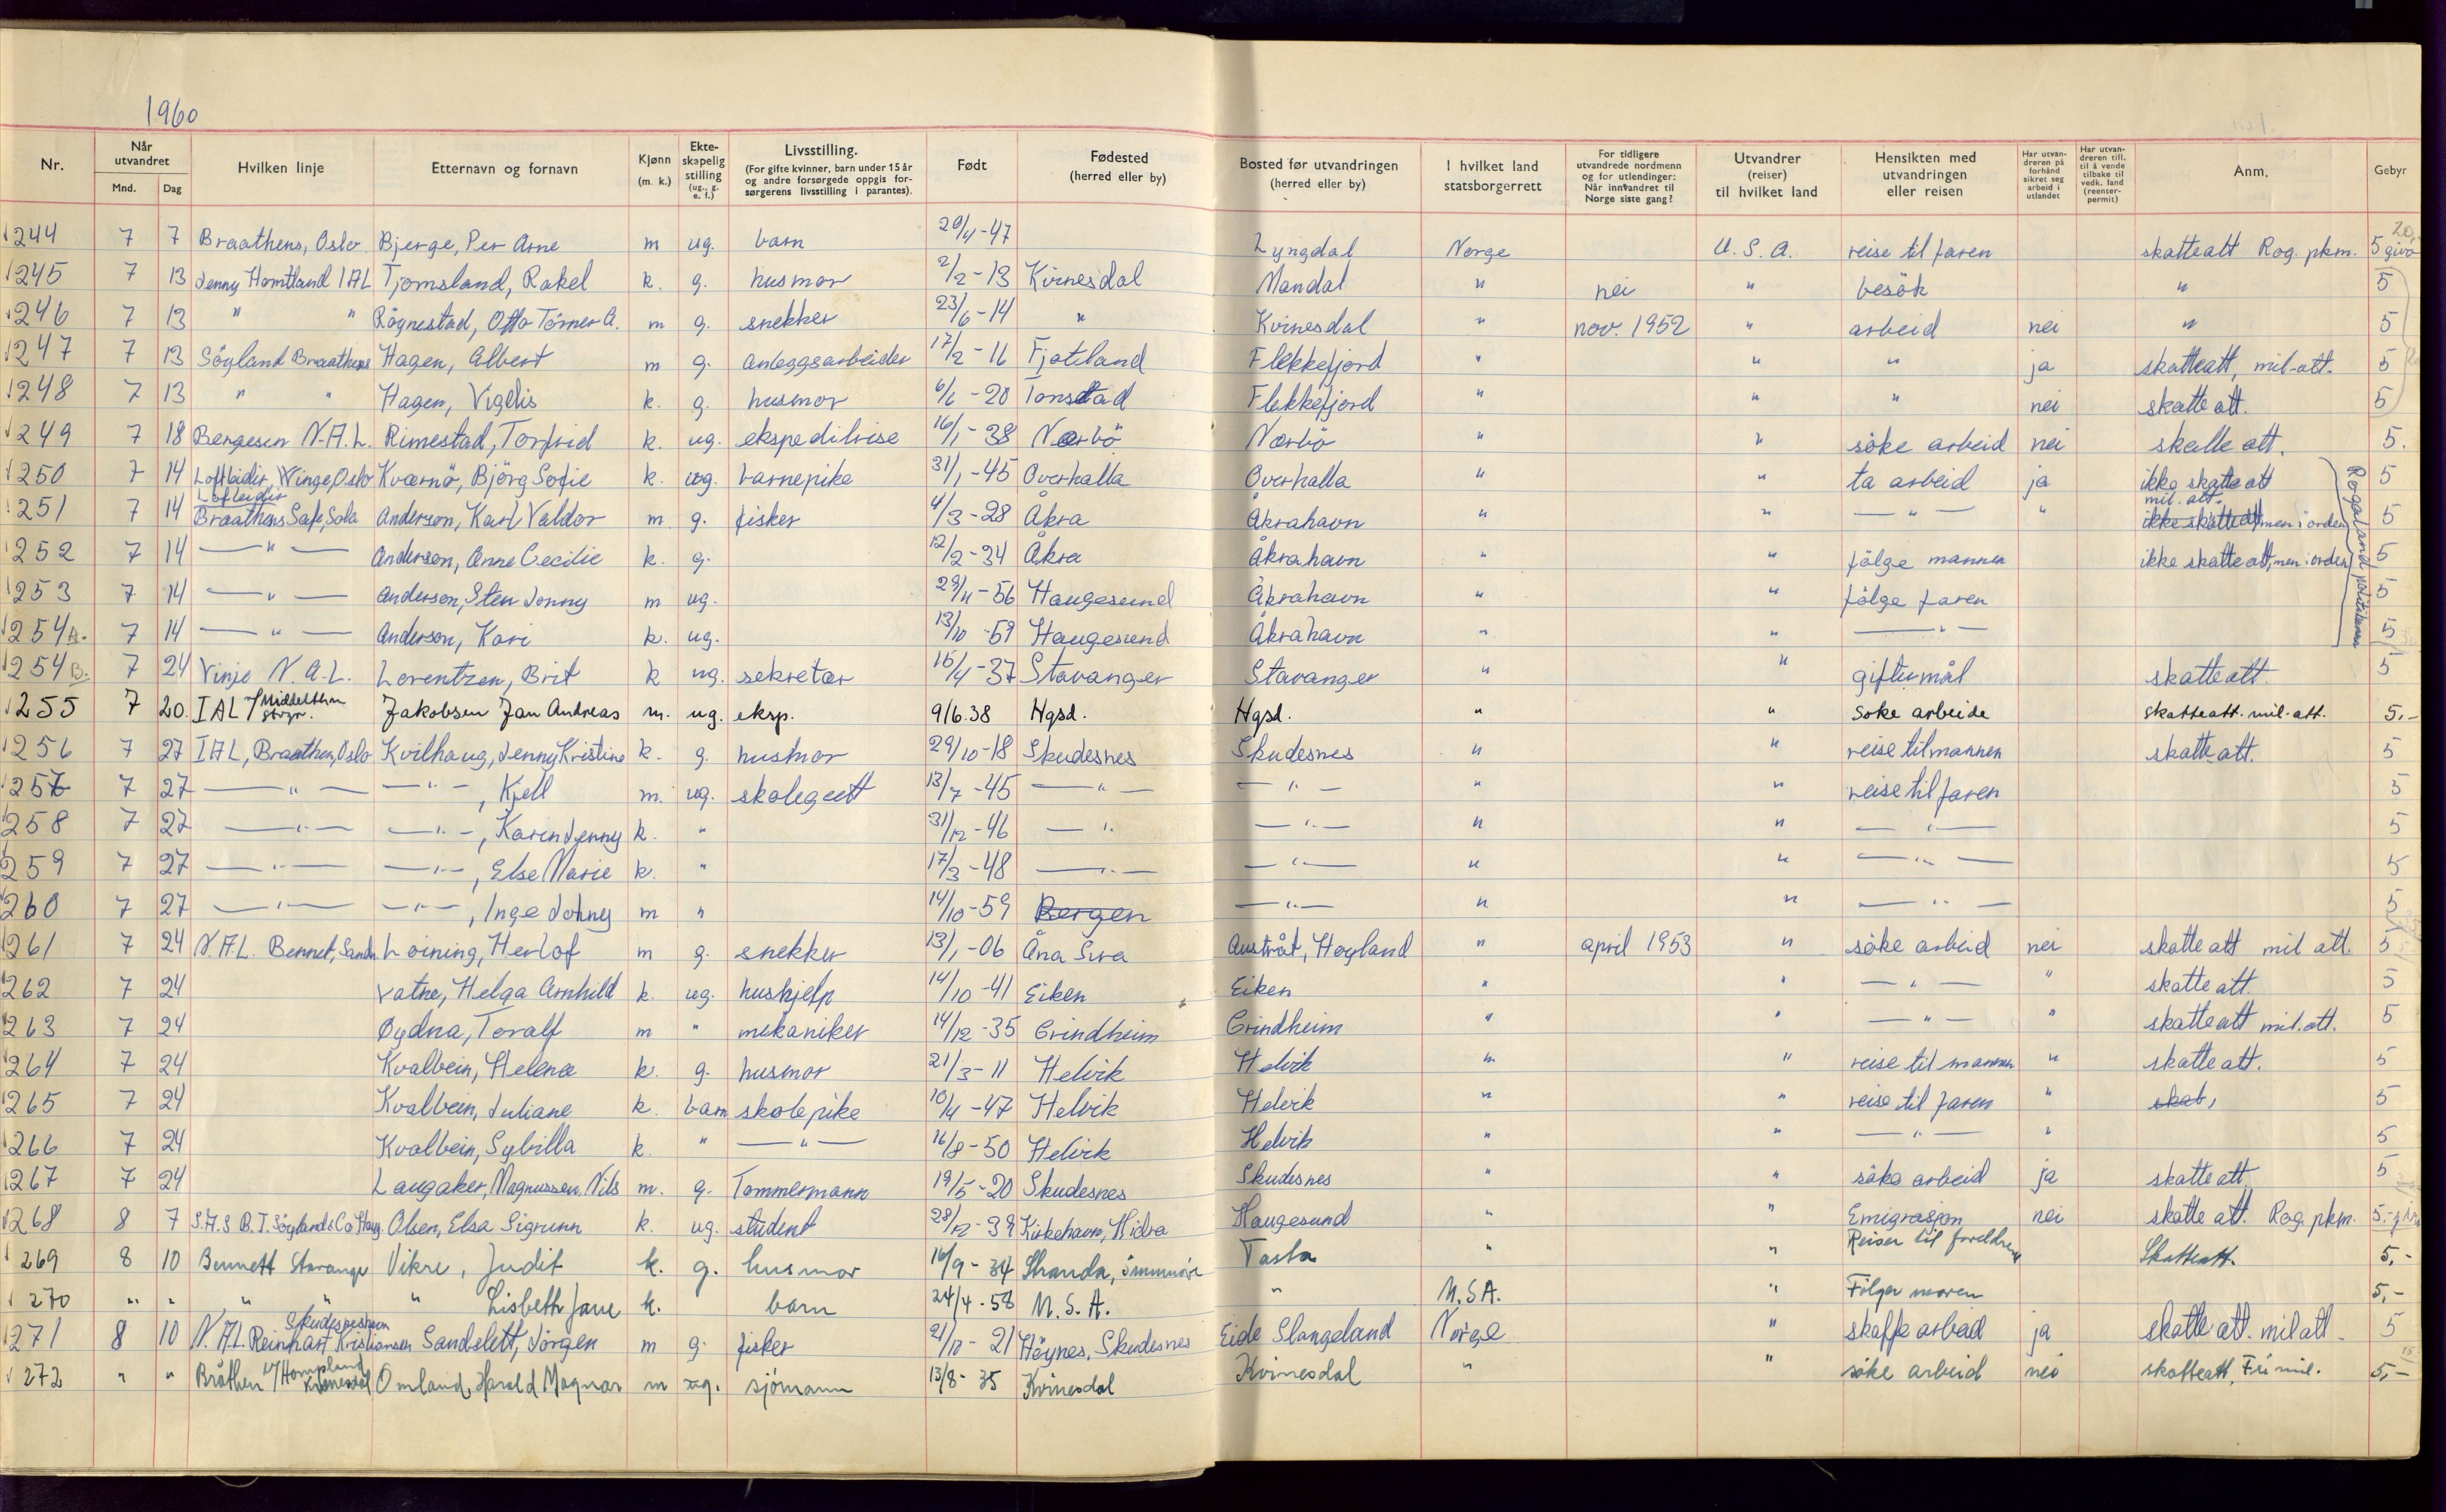 1960
Nr. Når utvandret Mnd. Dag Hvilken linje Etternavn og fornavn Kjønn (m. k.) Ekteskapelig stilling (ug., g. e. f.) Livsstilling. (For gifte kvinner, barn under 15 år og andre forsørgede oppgis forsørgerens livsstilling i parantes). Født Fødested (herred eller by) Bosted før utvandringen (herred eller by) I hvilket land statsborgerrett For tidligere utvandrede nordmenn og for utlendinger: Når innvandret til Norge siste gang? Utvandrer (reiser) til hvilket land Hensikten med utvandringen eller reisen Har utvandreren på forhånd sikret seg arbeid i utlandet Har utvandreren till. til å vende tilbake til vedk. land (reenterpermit) Anm. Gebyr
1244 7 7 Braathens, Oslo Bjerge, Per Arne m ug. barn 20/4-47 Lyngdal Norge U.S.A. reise til faren skatteatt Rog. pkm. 5 giro 20,-
1245 7 13 Jenny Homtland IAL Tjomsland, Rakel k. g. husmor 2/2-13 Kvinesdal Mandal " nei " besök " 5
1246 7 13 " " Rögnestad, Otto Tórner A. m g. snekker 23/6-14 " Kvinesdal " nov. 1952 " arbeid nei " 5
1247 7 13 Söyland Braathens Hagen, Albert m g. anleggsarbeider 17/2-16 Fjotland Flekkefjord " " " ja skatteatt, mil-att. 5
1248 7 13 " " Hagen, Vigdis k. g. husmor 6/6-20 Tonstad Flekkefjord " " " nei skatte att. 5
1249 7 18 Bergesen N.A.L. Rimestad, Torfrid k. ug. ekspeditrise 16/1-38 Nærbö Nærbö " " söke arbeid nei skatte att. 5.
1250 7 14 Loftleidir, Winge, Oslo Kværnö, Björg Sofie k. ug. barnepike 31/1-45 Overhalla Overhalla " " ta arbeid ja ikke skatte att 5
1251 7 14 Lofleidir Braathens Safe, Sola Anderson, Karl Valdor m. g. fisker 4/3-28 Åkra Åkrahavn " " — " — " mil. att. ikke skatteatt men i orden 5
1252 7 14 — " — Anderson, Anne Cecilie k. g. 12/2-34 Åkra Åkrahavn " " fölge mannen ikke skatte att, men i orden 5
1253 7 14 — " — Anderson, Sten Jonny m ug. 29/11-56 Haugesund Åkrahavn " " fölge faren 5
1254 A. 7 14 — " — Anderson, Kari k. ug. 13/10-59 Haugesund Åkrahavn " " — " — 5
Rogaland politikammer
1254 B. 7 24 Vinje N.A.L. Lorentzen, Brit k ug. sekretær 15/4-37 Stavanger Stavanger " " giftermål skatteatt. 5
1255 7 20. IAL v/Middelthon Stvgr. Jakobsen Jan Andreas m. ug. eksp. 9/6.38 Hgsd. Hgsd. " " Søke arbeide skatteatt. mil-att. 5,-
1256 7 27 IAL, Braathen, Oslo Kvilhaug, Jenny Kristine k. g. husmor 29/10-18 Skudesnes Skudesnes " " reise til mannen skatte att. 5
1257 7 27 — " — — " —, Kjell m. ug. skolegutt 13/7-45 — " — — " — " " reise til faren 5
1258 7 27 — " — — " —, Karin Jenny k. " 31/12-46 — " — " — " " — " — 5
1259 7 27 — " — — " —, Else Marie k. " 17/3-48 — " — — " — " " — " — 5
1260 7 27 — " — — " —, Inge Johny m " 14/10-59 Bergen — " — " " — " — 5
1261 7 24 N.A.L. Bennet, Sandn. Loining, Herlof m g. snekker 13/1-06 Åna Sira Austråt, Høyland " april 1953 " söke arbeid nei skatte att mil att. 5
1262 7 24 Vatne, Helga Arnhild k. ug. hushjelp 14/10-41 Eiken Eiken " " — " — " skatte att. 5
1263 7 24 Øydna, Toralf m " mekaniker 14/12-35 Grindheim Grindheim " " — " — " skatteatt mil.att. 5
1264 7 24 Kvalbein, Helena k. g. husmor 21/3-11 Helvik Helvik " " reise til mannen " skatte att. 5
1265 7 24 Kvalbein, Juliane k. barn skolepike 10/4-47 Helvik Helvik " " reise til faren " skat, 5
1266 7 24 Kvalbein, Sybilla k. " — " — 16/8-50 Helvik Helvik " " — " — " 5
1267 7 24 Laugaker, Magnussen, Nils m. g. Tømmermann 19/5-20 Skudesnes Skudesnes " " söke arbeid ja skatte att 5
1268 8 7 S.A.S B.T. Söyland & Co Haug. Olsen, Elsa Sigrunn k. ug. student 28/12-39 Kirkehavn, Hidra Haugesund " " Emigrasjon nei skatte att. Rog. pkm. 5.-
1269 8 10 Bennett Stavanger Vikre, Judit k. g. husmor 16/9-34 Stranda, Sunnmöre Tasta " " Reiser til foreldrene Skatteatt. 5,-
1270 " " " " Lisbeth Jane k. barn 24/4-58 U.S.A. " U.S.A. " Fölger moren 5,-
1271 8 10 N.A.L. Reinhart Kristiansen Skudeneshavn Sandslett, Jörgen m g. fisker 21/10-21 Höynes, Skudesnes Eide Slangeland Norge " skaffe arbeid ja skatte att. mil att. 5
1272 " " Bråthen v/Hompland Kvinesdal Omland, Harald Magnar m ug. sjömann 13/8-35 Kvinesdal Kvinesdal " " söke arbeid nei skatteatt, Fri mil. 5,-